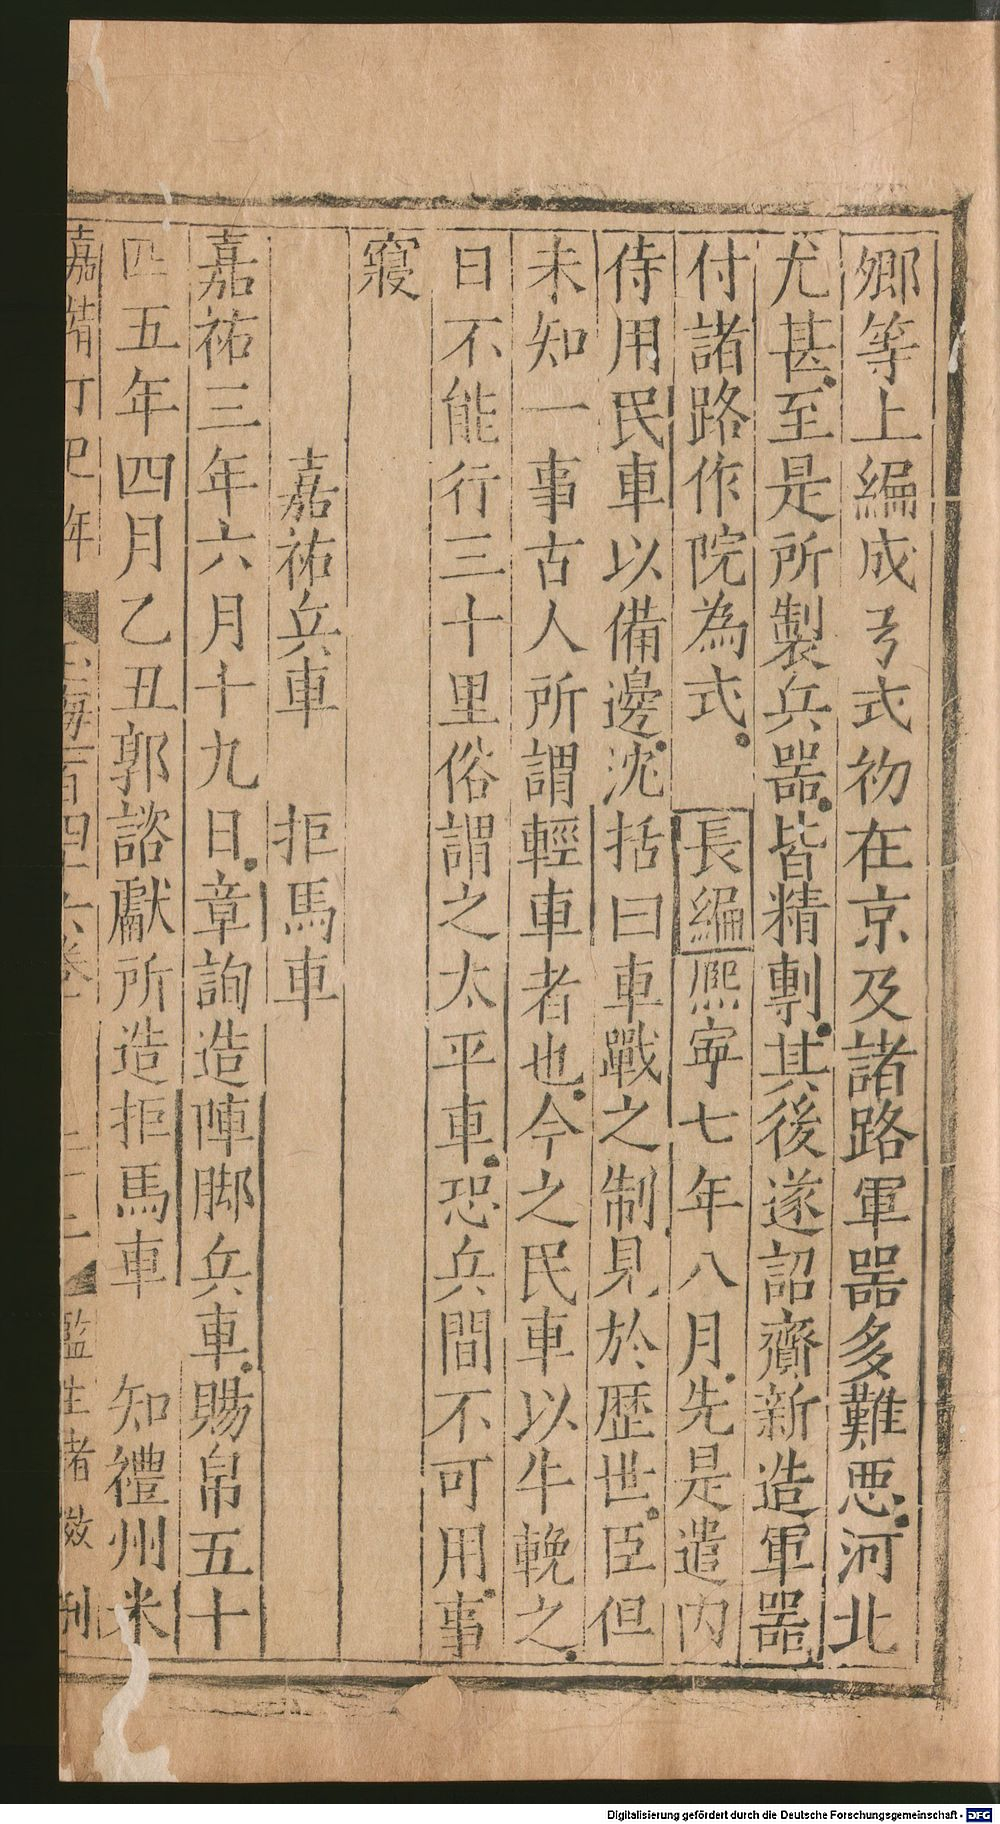 鄉等上編成弓式礽在京及諸路軍器多難悪河北
尤甚至是所製兵器皆精剸其後遂詔齎新造軍器
付諸路作院為式 長編熈寕七年八月先是遣内
侍用民車以備邊沈括曰車戰之制見於歴世臣但
未知一事古人所謂輕車者也今之民車以牛輓之
日不能行三十里俗謂之太平車恐兵間不可用事
寢
嘉祐兵車 拒馬車
嘉祐三年六月十九日章詢造陣脚兵車賜帛五十
匹五年四月乙丑郭諮獻所造拒馬車 知禮州米
嘉靖丁巳年 玉海一百四十六卷 二十二 監生者 刋
Digitalisierung gefördert durch die Deutsche Forschungsgemeinschaft - DFG